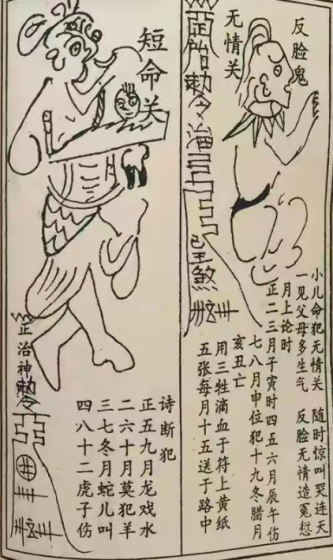 反脸鬼
无情关
敕令治
王煞
小儿命犯无情关 随时惊叫哭连天
一见父母多生气 反脸无情造冤愆
月上论时
正二三月子寅时四五六月辰午伤
七八月申位犯十九冬腊月
亥丑亡
用三牲滴血于符上黄纸
五张每月十五送于路中
短命关
诗断犯
正五九月龙戏水
二六十月莫犯羊
三七冬月蛇儿叫
四八十二虎子伤
正治神敕令